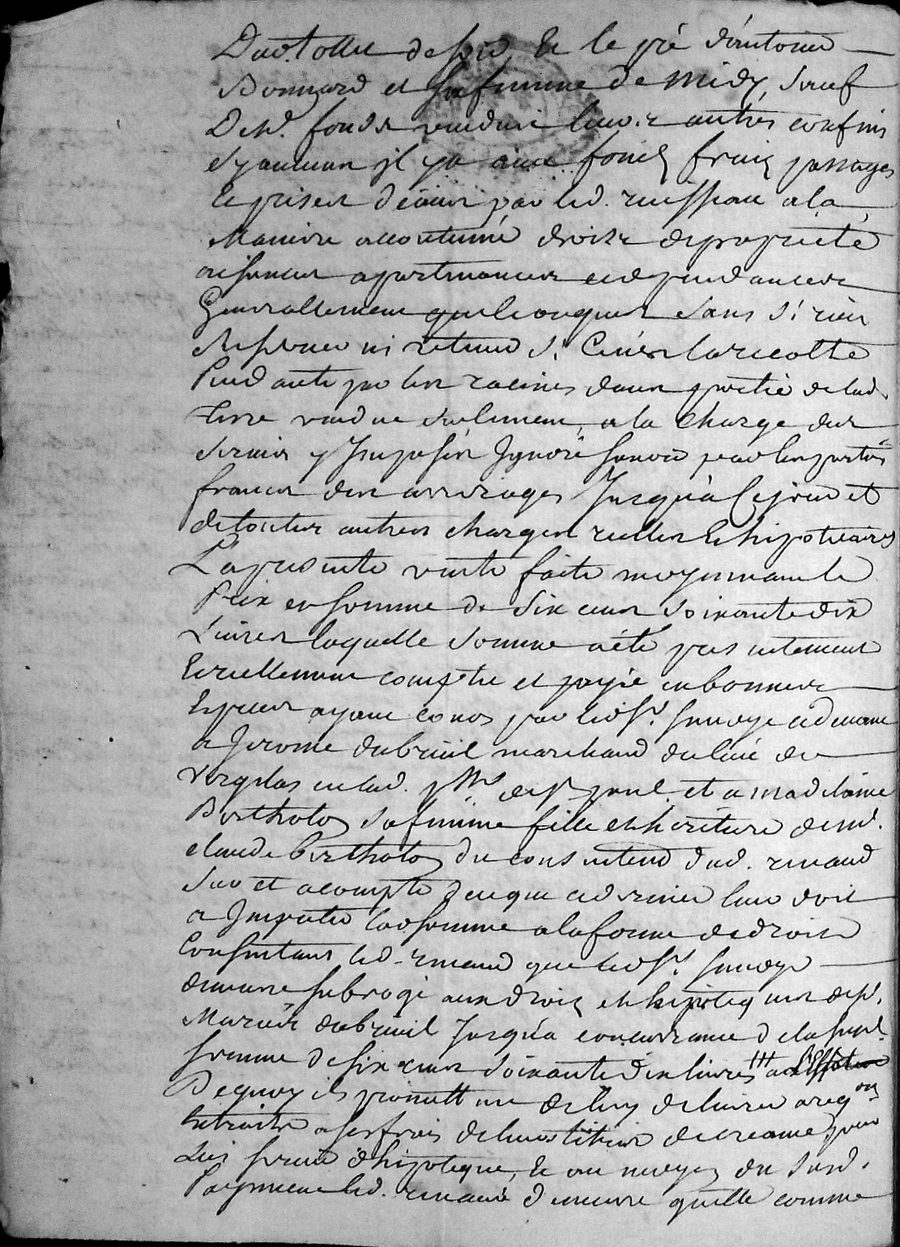 de soir & le pré d'antoine
Bonnard et sa femme de midy, sauf
Desd. fonds vendus leurs autres confins
sy aucun il ya aux fonds frais passages
et prises d'eaux par led. ruisseau a la
Maniere accoutumé droits de proprieté
aisances apartenances et dependances
Generallement quelconques sans s'i rien
Reserver ni retenir si ce n'est la recolte
Pendante par les racines dans partie de lad.
terre vendue seulement, a la charge des
servis y Imposés Ignoré savoir par les parties
francs des arrerages Jusqu'a ce jour et
de toutes autres charges réelles & hipotecaires
La presente vente faite moyennant le
Prix en somme de six cens soixante dix
Livres laquelle somme a été presentement
Et reellement comptée et payée en bonnes
Espèces ayant cours par led. Sr.
a Jerome dubreuil marchand du lieu de
en lad. psse. de St. paul et a madelaine
Bertholon sa femme fille et heritiere de
claude bertholon du consentement dud. renaud
Sur et acompte de ce que ce dernier leur doit
a Imputer lad. somme a la forme de droit
Consentant led. renaud que led. Sr.
demeure subrogé aux droits et hipoteques desd.
Mariés dubreuil Jusqu'a concurrance de la susd.
somme de six cens soixante dix livres
De quoy ils promettent de luy delivrer a requon.
Extraits a ses frais de leurs titres de creance pour
Lui servir d'hipoteque, & au moyen du susd.
Payement led. renaud demeure quitte comme